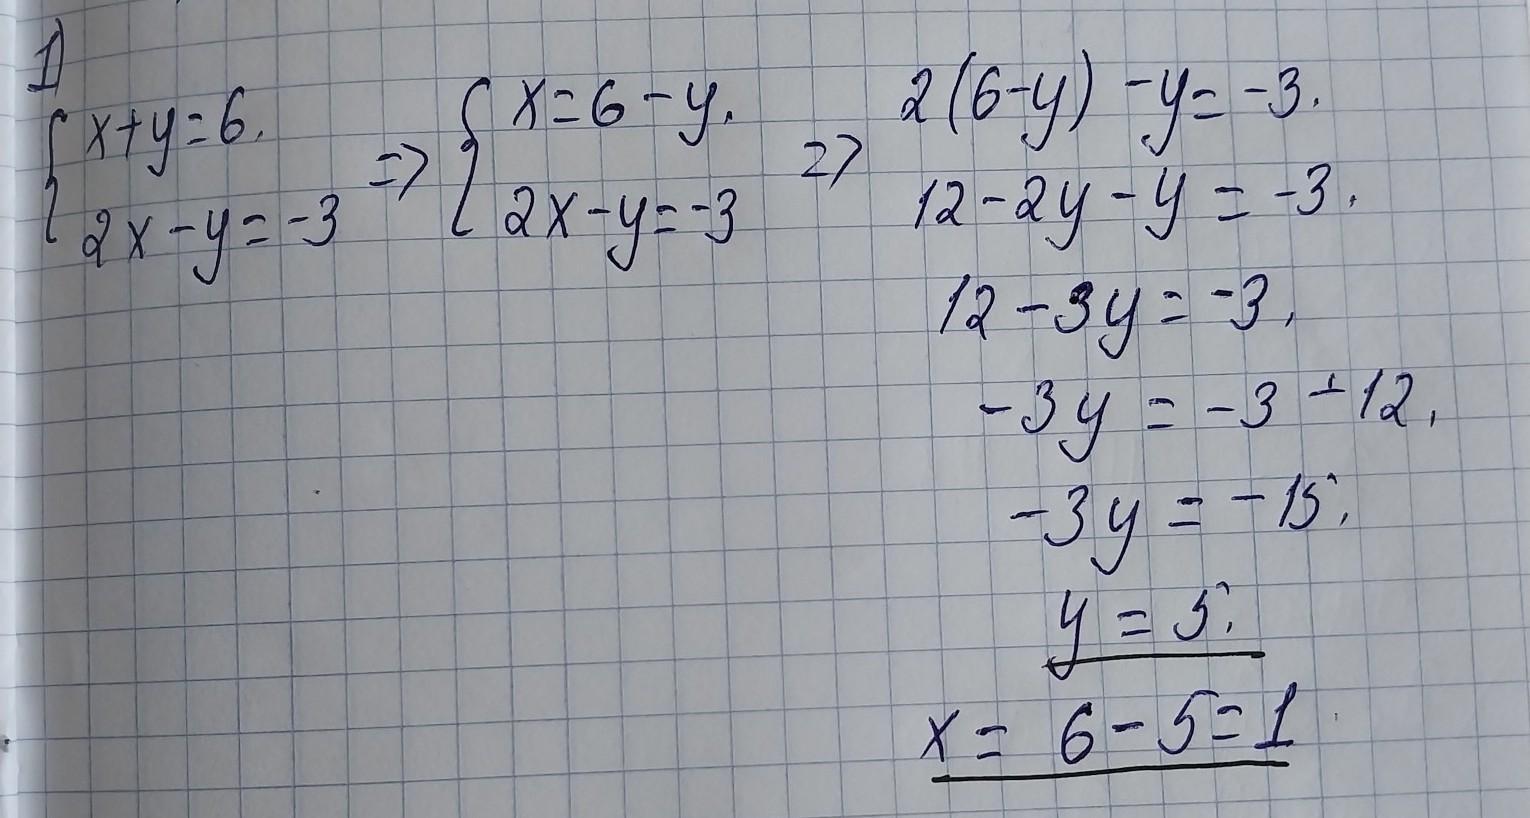 1)
{ x+y=6.
2x-y=-3
=> { x=6-y.
2x-y=-3
=> 2(6-y)-y=-3.
12-2y-y=-3.
12-3y=-3,
-3y=-3-12,
-3y=-15,
y=5.
x=6-5=1